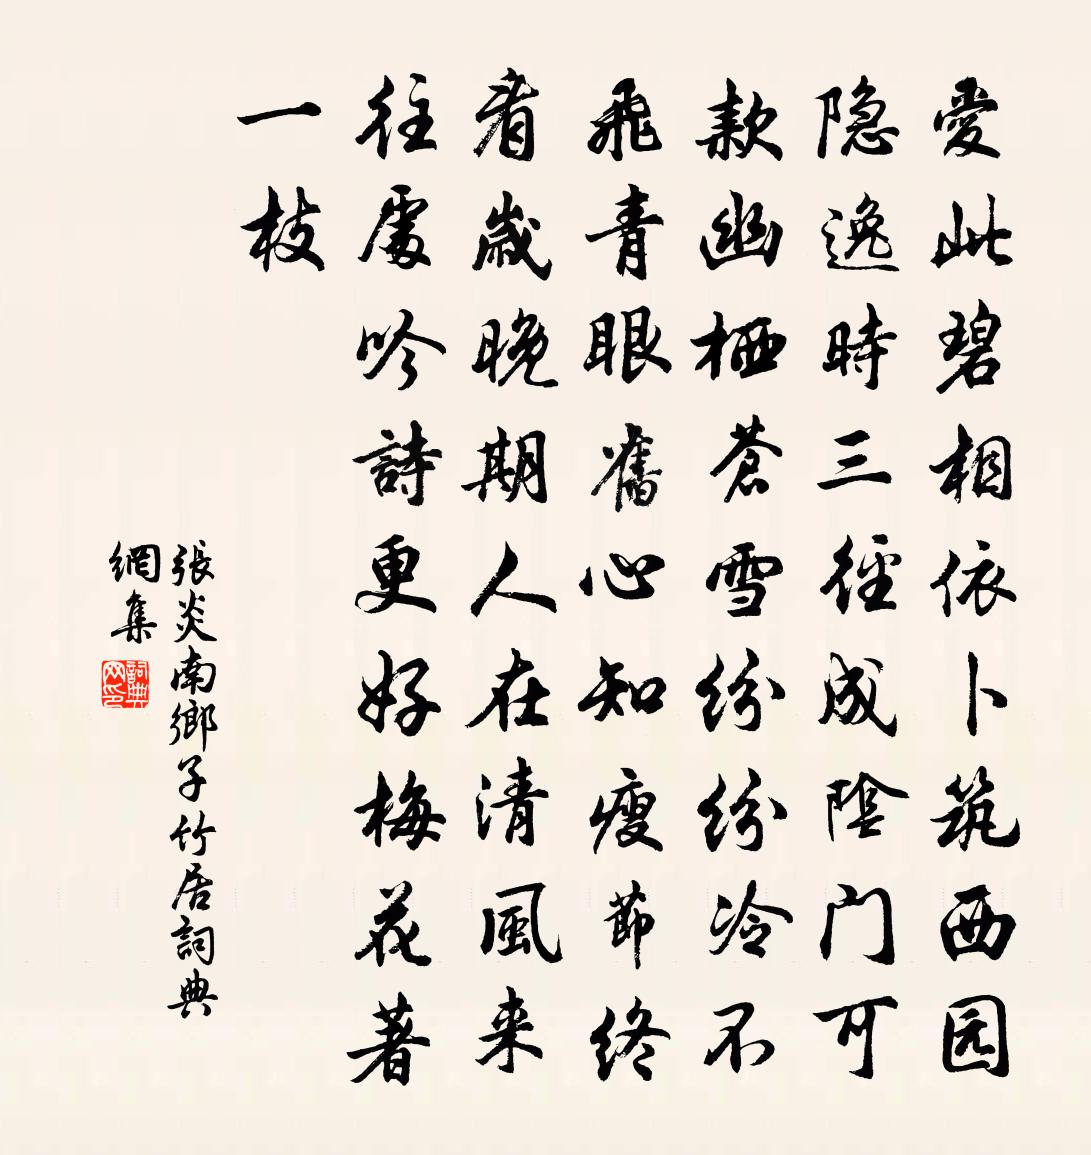 愛此碧相依卜筑西园
隐逸時三徑成陰门可
款幽栖蒼雪纷纷冷不
飛青眼舊心知瘦節终
看歲晚期人在清風来
往處吟詩更好梅花著
一枝
張炎南鄉子竹居詞典
網集
詞典网印